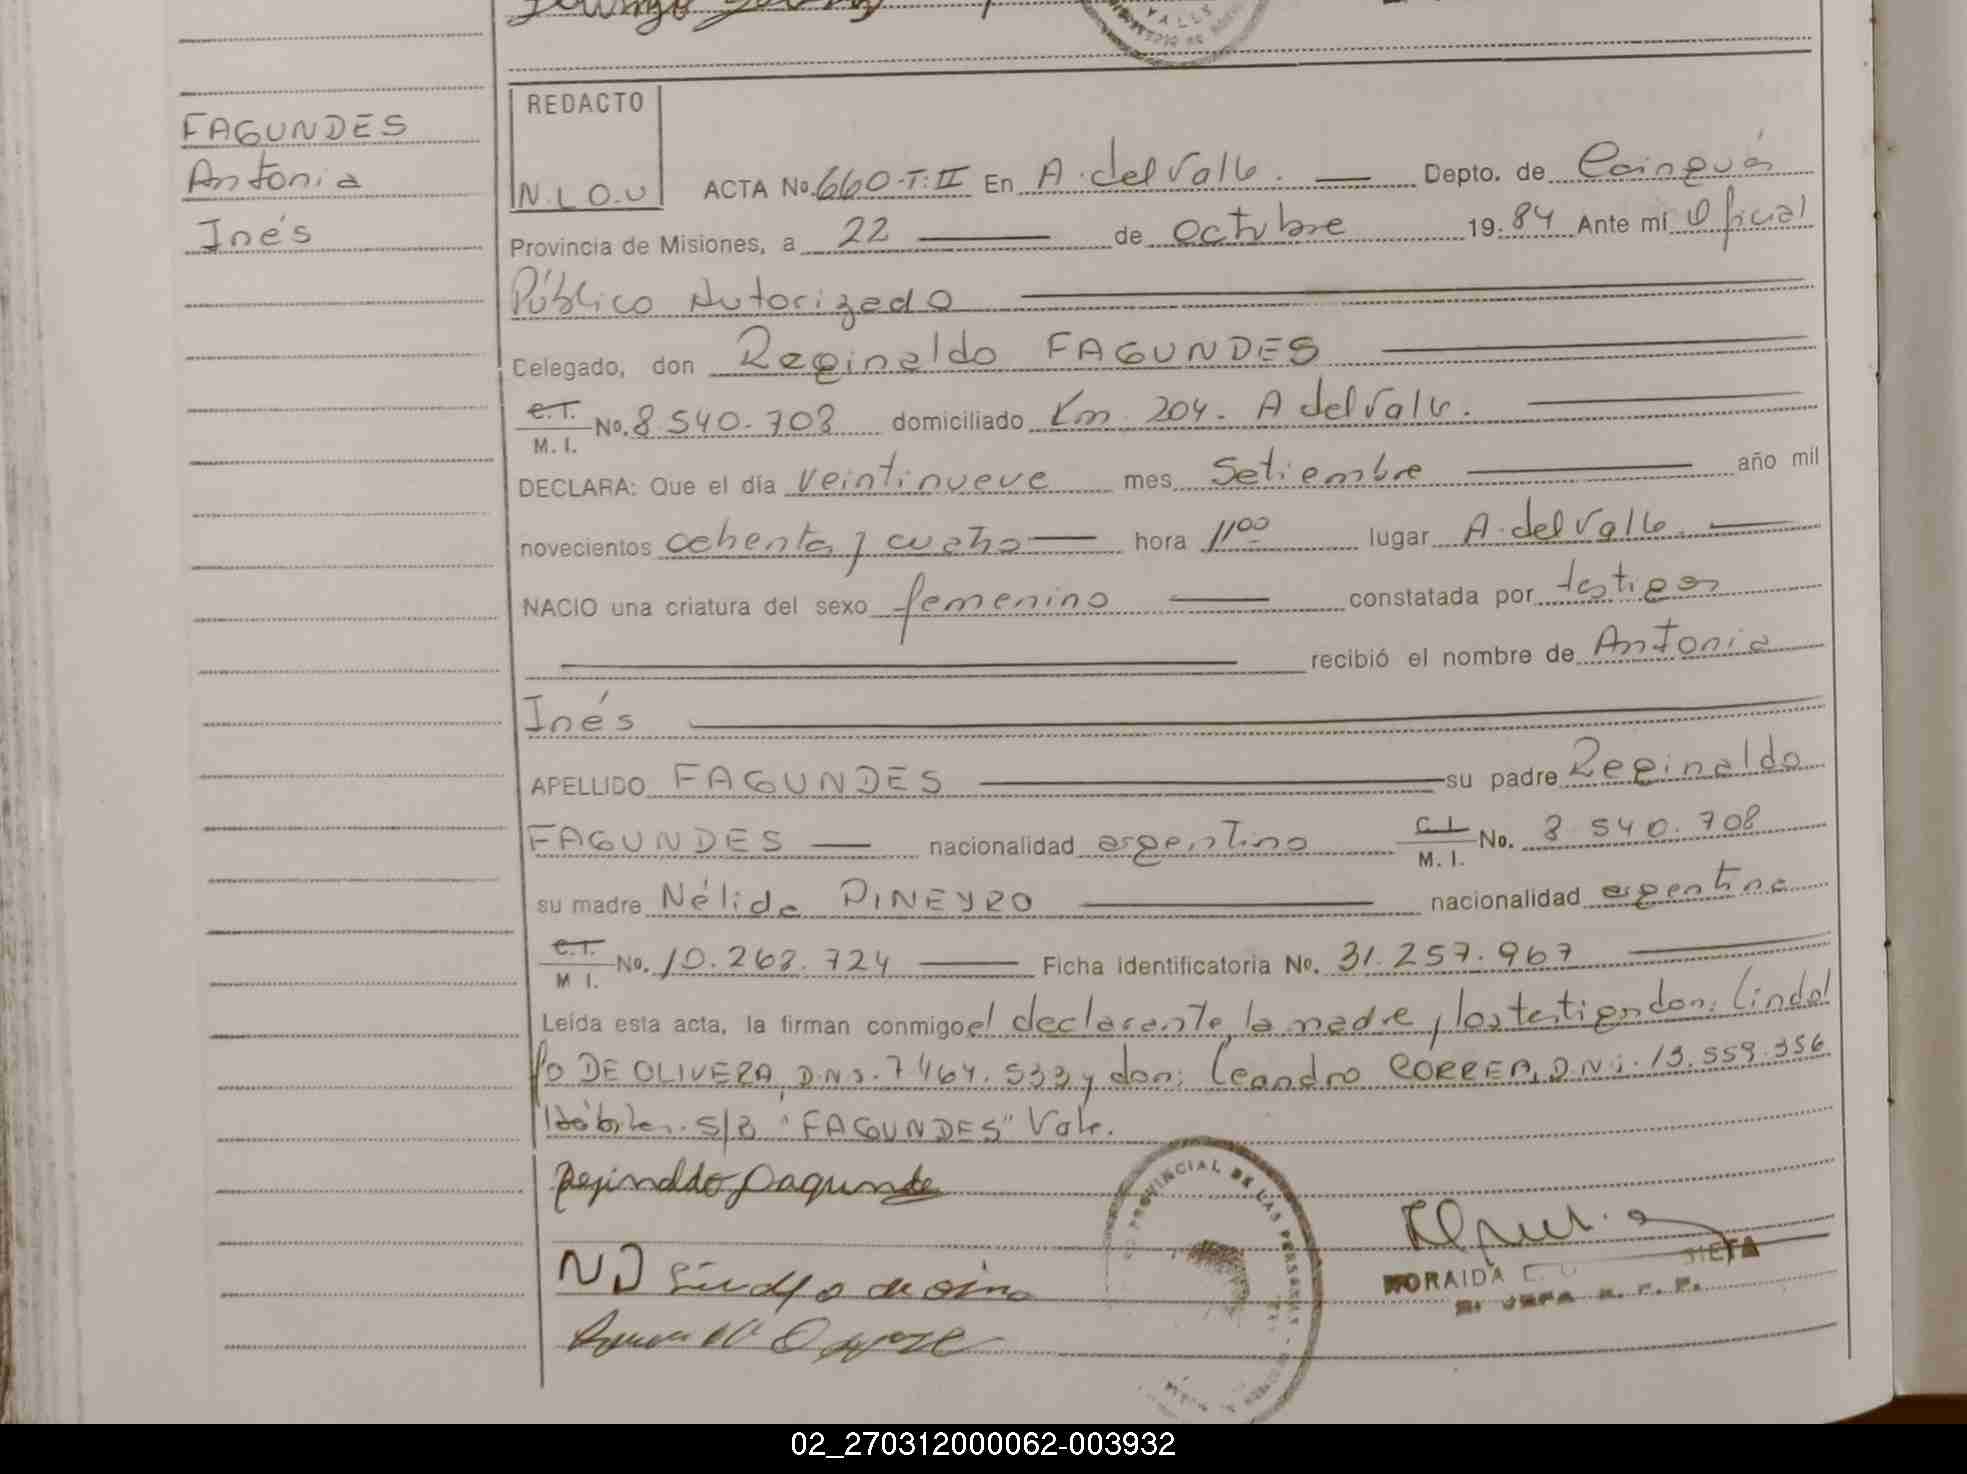 FAGUNDES
Antonia
Inés
REDACTO
N.L.O.U
ACTA No. 660-T:II En A. del Valle. Depto. de Cainguás
Provincia de Misiones, a 22 de octubre 19.84 Ante mí Oficial
Público Autorizado
Celegado, don Reginaldo FAGUNDES
C.I. M. I. No. 8.540.708 domiciliado Km. 204. A del Valle.
DECLARA: Que el día veintinueve mes Setiembre año mil
novecientos ochenta y cuatro hora 11 00 lugar A. del Valle.
NACIO una criatura del sexo femenino constatada por testigos
recibió el nombre de Antonia
Inés
APELLIDO FAGUNDES su padre Reginaldo
FAGUNDES nacionalidad argentino C.I. M. I. No. 8.540.708
su madre Nélida PINEYRO nacionalidad argentina
C.I. M I. No. 10.268.724 Ficha identificatoria No. 31.257.967
Leída esta acta, la firman conmigo el declarante, la madre y los testigos don: Lindol
fo DE OLIVERA, D.N.I. 7.464.533 y don: Leandro CORREA, D.N.I. 13.559.356
Hábiles. S/B "FAGUNDES" Vale.
Rejinaldo Fagunde
PROVINCIAL DE LAS PERSONAS
NORAIDA